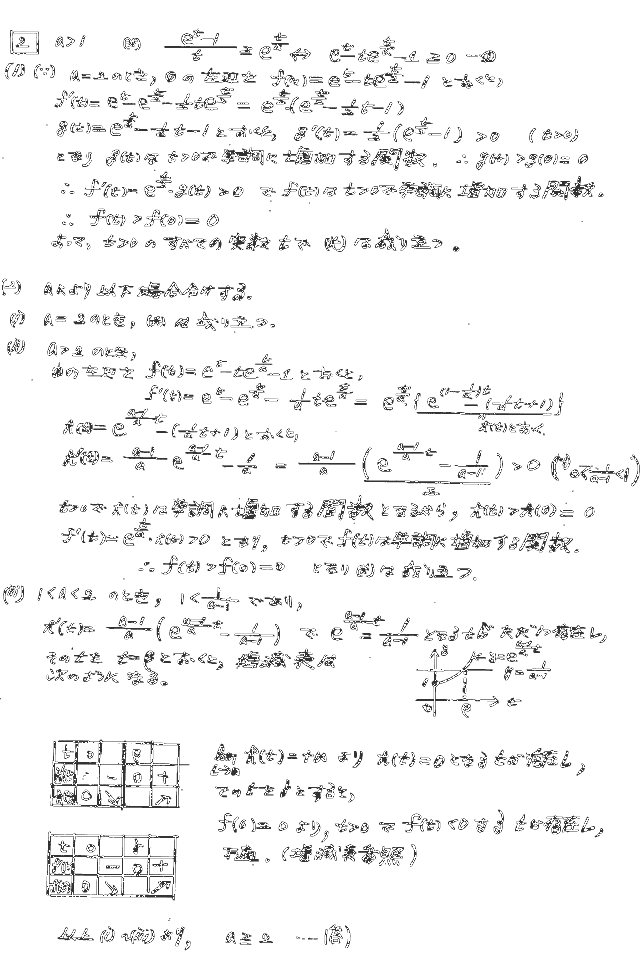 2 a>1 (*) (e^t-1)/t ≧ e^{t/a} ⇔ e^t-te^{t/a}-1≧0 …①
(1) (∵) a=2のとき, ①の左辺を f(t)=e^t-te^{t/2}-1 とおくと,
f'(t)=e^t-e^{t/2}-1/2te^{t/2}=e^{t/2}(e^{t/2}-1/2t-1)
g(t)=e^{t/2}-1/2t-1とおくと, g'(t)=1/2(e^{t/2}-1)>0 (t>0)
となり g(t)はt>0で単調に増加する関数. ∴g(t)>g(0)=0
∴ f'(t)=e^{t/2}・g(t)>0 で f(t)はt>0で単調に増加する関数.
∴ f(t)>f(0)=0
よって, t>0のすべての実数tで (*)は成り立つ.
(2) aにより以下場合分けする.
(i) a=2のとき, (*)は成り立つ.
(ii) a>2のとき,
①の左辺を f(t)=e^t-te^{t/a}-1とおくと,
f'(t)=e^t-e^{t/a}-1/a te^{t/a}=e^{t/a}{e^{(1-1/a)t}-(1/a t+1)}
h(t)とおく.
h(t)=e^{(a-1)/a t}-(1/a t+1)とおくと,
h'(t)=(a-1)/a e^{(a-1)/a t}-1/a=(a-1)/a(e^{(a-1)/a t}-1/(a-1))>0 (∵ 0<1/(a-1)<1)
t>0でh(t)は単調に増加する関数となるから, h(t)>h(0)=0
f'(t)=e^{t/a}・h(t)>0となり, t>0でf(t)は単調に増加する関数.
∴ f(t)>f(0)=0 となり (*)は成り立つ.
(iii) 1<a<2のとき, 1<1/(a-1)であり,
h'(t)=(a-1)/a(e^{(a-1)/a t}-1/(a-1)) で e^{(a-1)/a t}=1/(a-1)となるtがただ1つ存在し,
そのtを t=βとおくと, 増減表は
次のようになる.
y y=e^{(a-1)/a t}
y=1/(a-1)
1
0 β t
t 0 β
h'(t) - 0 +
h(t) 0 ↘ ↗
lim t→∞ h(t)=+∞より h(t)=0となるtが存在し,
そのtをγとすると,
f(0)=0より, t>0でf(t)<0なるtが存在し,
不適. (増減表参照)
t 0 γ
f'(t) - 0 +
f(t) 0 ↘ ↗
以上(i)~(iii)より, a≧2 …(答)